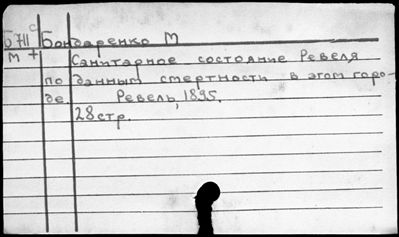 Бондаренко М
М 7 Санитарное состояние Ревеля
по данным смертности в этом горо-
де. Ревель, 1895.
28 стр.